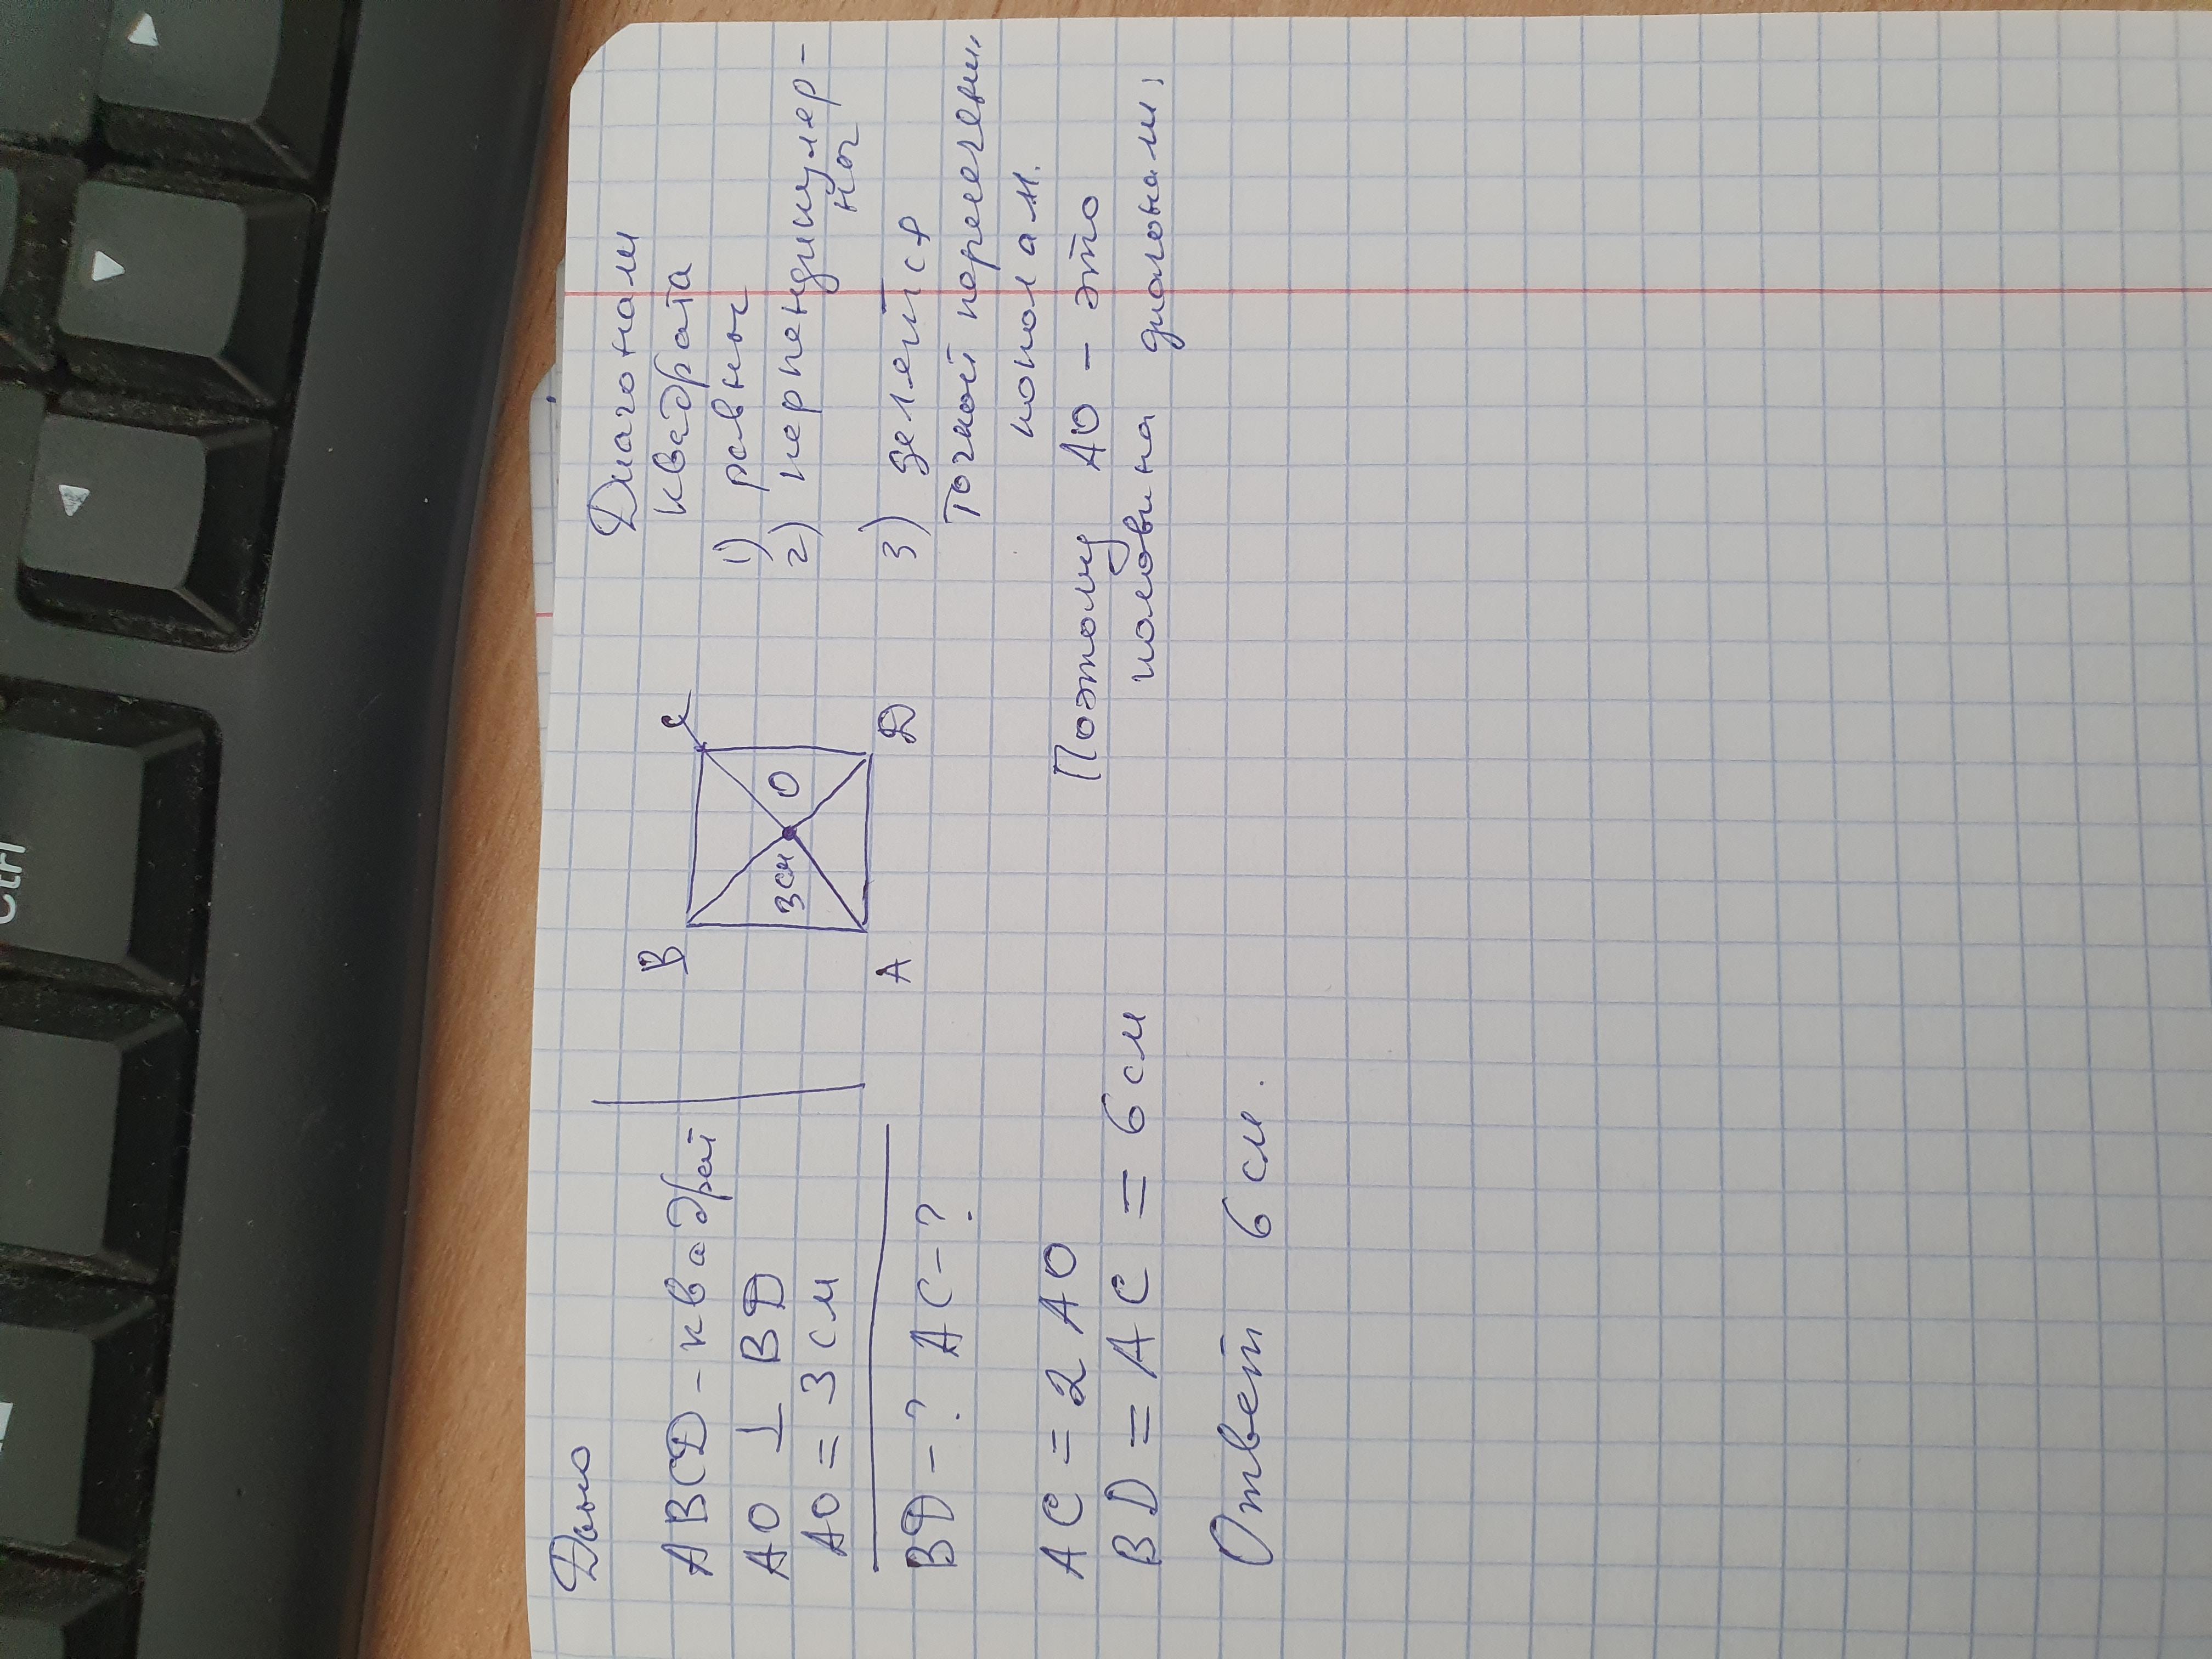 Ctrl
Дано
ABCD - квадрат
AO ⊥ BD
AO = 3 см
BD - ? AC - ?
AC = 2 AO
BD = AC = 6 см
Ответ 6 см.
B
C
3 см
O
A
D
Диагонали
квадрата
1) равны
2) перпендикуляр-
ны
3) делятся
точкой пересечения
пополам.
Поэтому AO - это
половина диагонали,